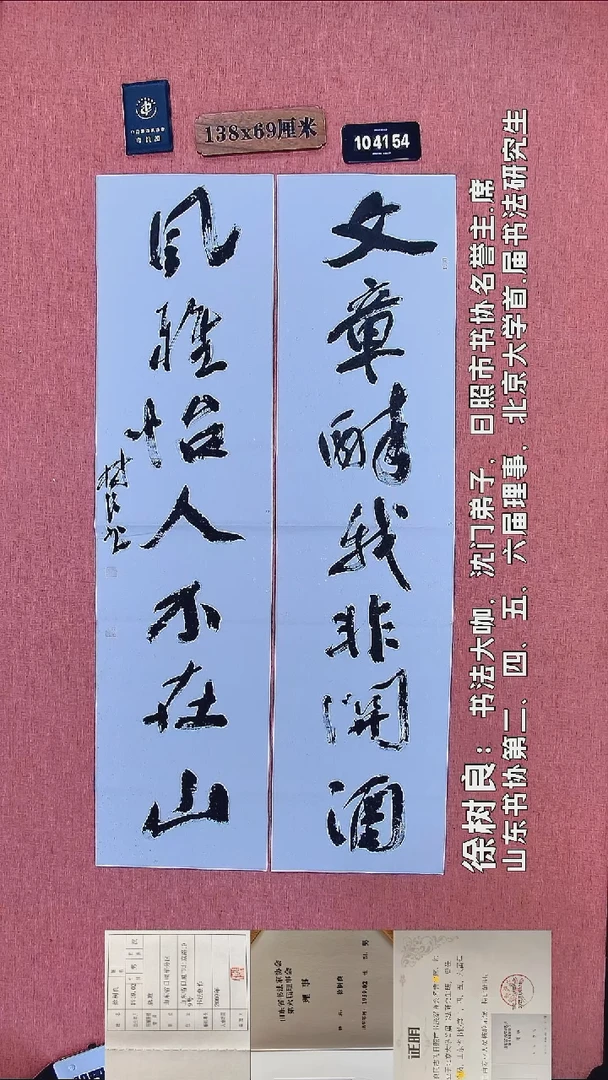 138x69厘米
104154
文章醉我非關酒
风雅怡人不在山
树良书
徐树良：书法大咖，沈门弟子，日照市书协名誉主席
山东书协第二、四、五、六届理事，北京大学首届书法研究生
理事
证明